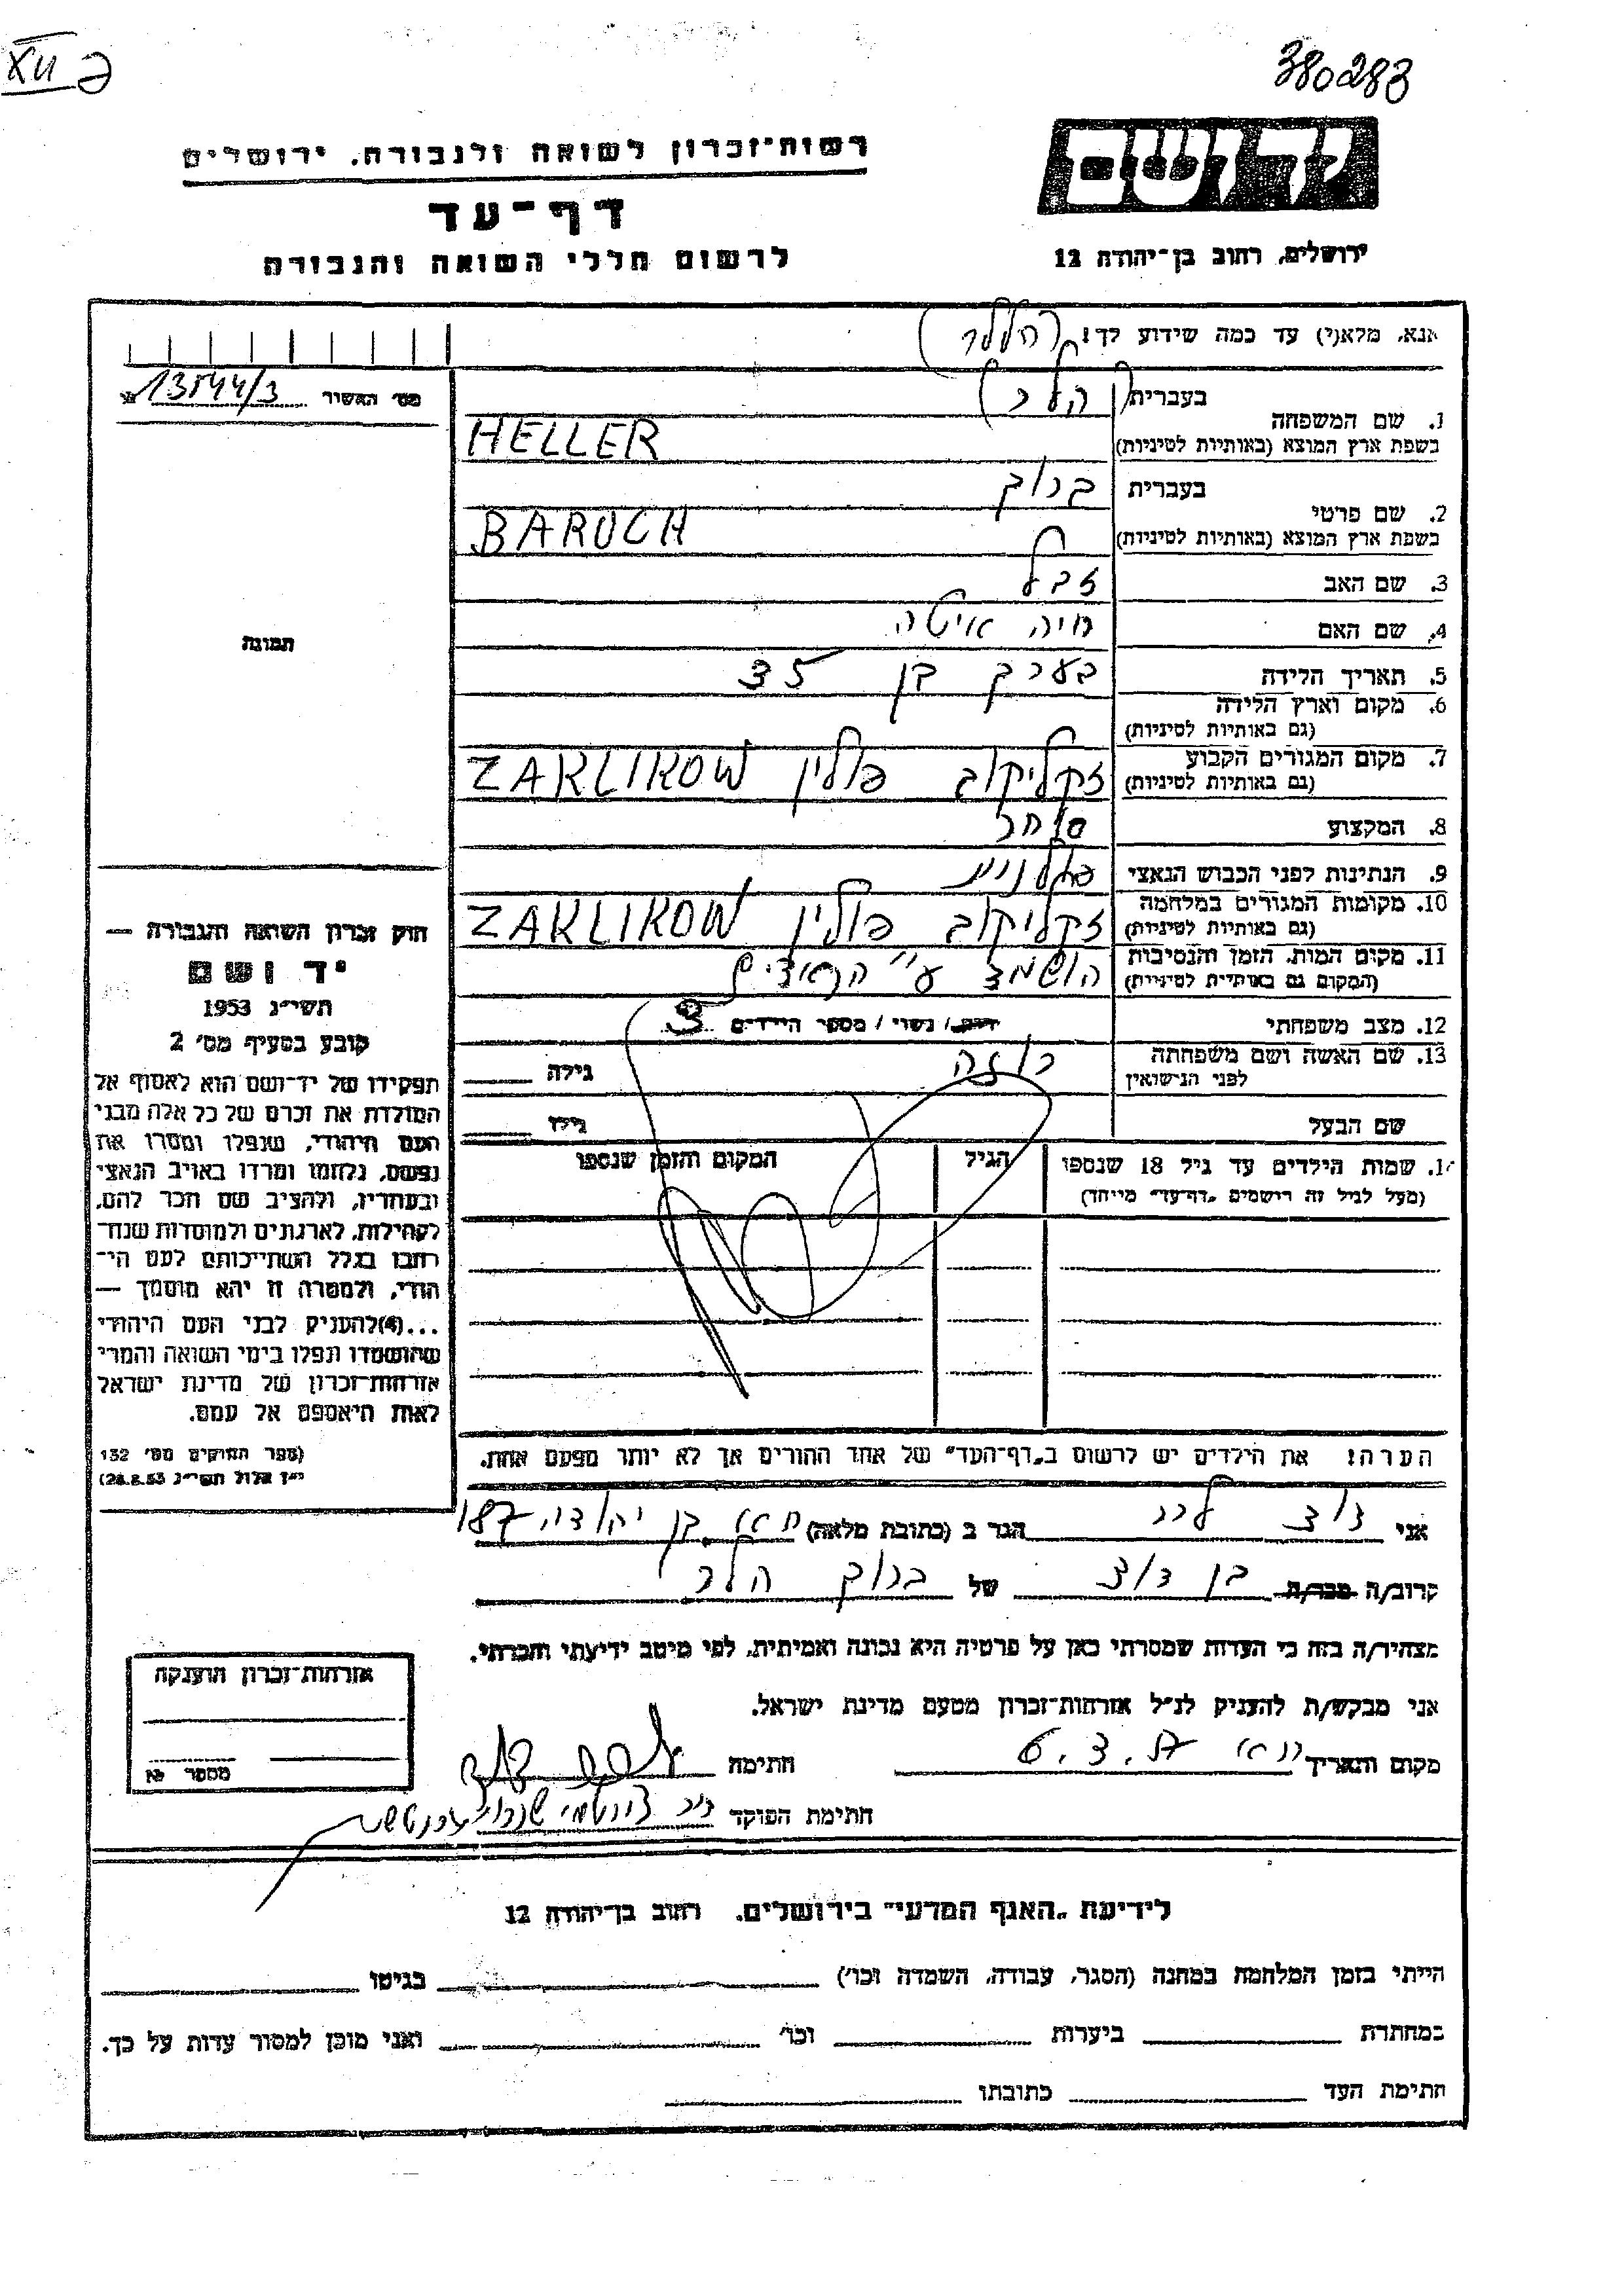 XII ב
380283
רשות־זכרון לשואה ולגבורה, ירושלים
יד ושם
דף־עד
לרשום חללי השואה והגבורה
ירושלים, רחוב בן־יהודה 12
אנא, מלא(י) עד כמה שידוע לך!
מס' האשיר 13544/3
בעברית הלר
1. שם המשפחה
בשפת ארץ המוצא (באותיות לטיניות) HELLER
בעברית ברוך
2. שם פרטי
בשפת ארץ המוצא (באותיות לטיניות) BARUCH
3. שם האב זבל
4. שם האם חיה איטה
תמונה
5. תאריך הלידה בערך בן 35
6. מקום וארץ הלידה
(גם באותיות לטיניות)
7. מקום המגורים הקבוע
(גם באותיות לטיניות) זקליקוב פולין ZAKLIKOW
8. המקצוע סוחר
9. הנתינות לפני הכבוש הנאצי פולנית
10. מקומות המגורים במלחמה
(גם באותיות לטיניות) זקליקוב פולין ZAKLIKOW
11. מקום המות, הזמן והנסיבות
(המקום גם באותיות לטיניות) הושמד ע"י הנאצים
12. מצב משפחתי רווק / נשוי / מספר הילדים 3
13. שם האשה ושם משפחתה
לפני הנישואין רוזה גילה
שם הבעל גילו
14. שמות הילדים עד גיל 18 שנספו הגיל המקום והזמן שנספו
(מעל לגיל זה רושמים "דף־עד" מיוחד)
חוק זכרון השואה והגבורה —
יד ושם
תשי"ג 1953
קובע בסעיף מס' 2
תפקידו של יד־ושם הוא לאסוף אל
המולדת את זכרם של כל אלה מבני
העם היהודי, שנפלו ומסרו את
נפשם, נלחמו ומרדו באויב הנאצי
ובעוזריו, ולהציב שם וזכר להם,
לקהילות, לארגונים ולמוסדות שנח־
רבו בגלל השתייכותם לעם הי־
הודי, ולמטרה זו יהא מוסמך —
...(4) להעניק לבני העם היהודי
שהושמדו ונפלו בימי השואה והמרי
אזרחות־זכרון של מדינת ישראל
לאות היאספם אל עמם.
(ספר החוקים מס' 132
י"ז אלול תשי"ג 28.8.53)
הערה! את הילדים יש לרשום ב"דף־העד" של אחד ההורים אך לא יותר מפעם אחת.
אני דוד הגר ב (כתובת מלאה) ת"א בן יהודה 187
קרוב/ה מכר/ה בן דוד של ברוך הלר
מצהיר/ה בזה כי העדות שמסרתי כאן על פרטיה היא נכונה ואמיתית, לפי מיטב ידיעתי והכרתי.
אני מבקש/ת להעניק לנ"ל אזרחות־זכרון מטעם מדינת ישראל.
מקום ותאריך ת"א חתימה
חתימת הפוקד
אזרחות־זכרון הוענקה
מספר №
לידיעת "האגף המדעי" בירושלים, רחוב בן־יהודה 12
הייתי בזמן המלחמה במחנה (הסגר, עבודה, השמדה וכו') בגיטו
במחתרת ביערות וכו' ואני מוכן למסור עדות על כך.
חתימת העד כתובתו